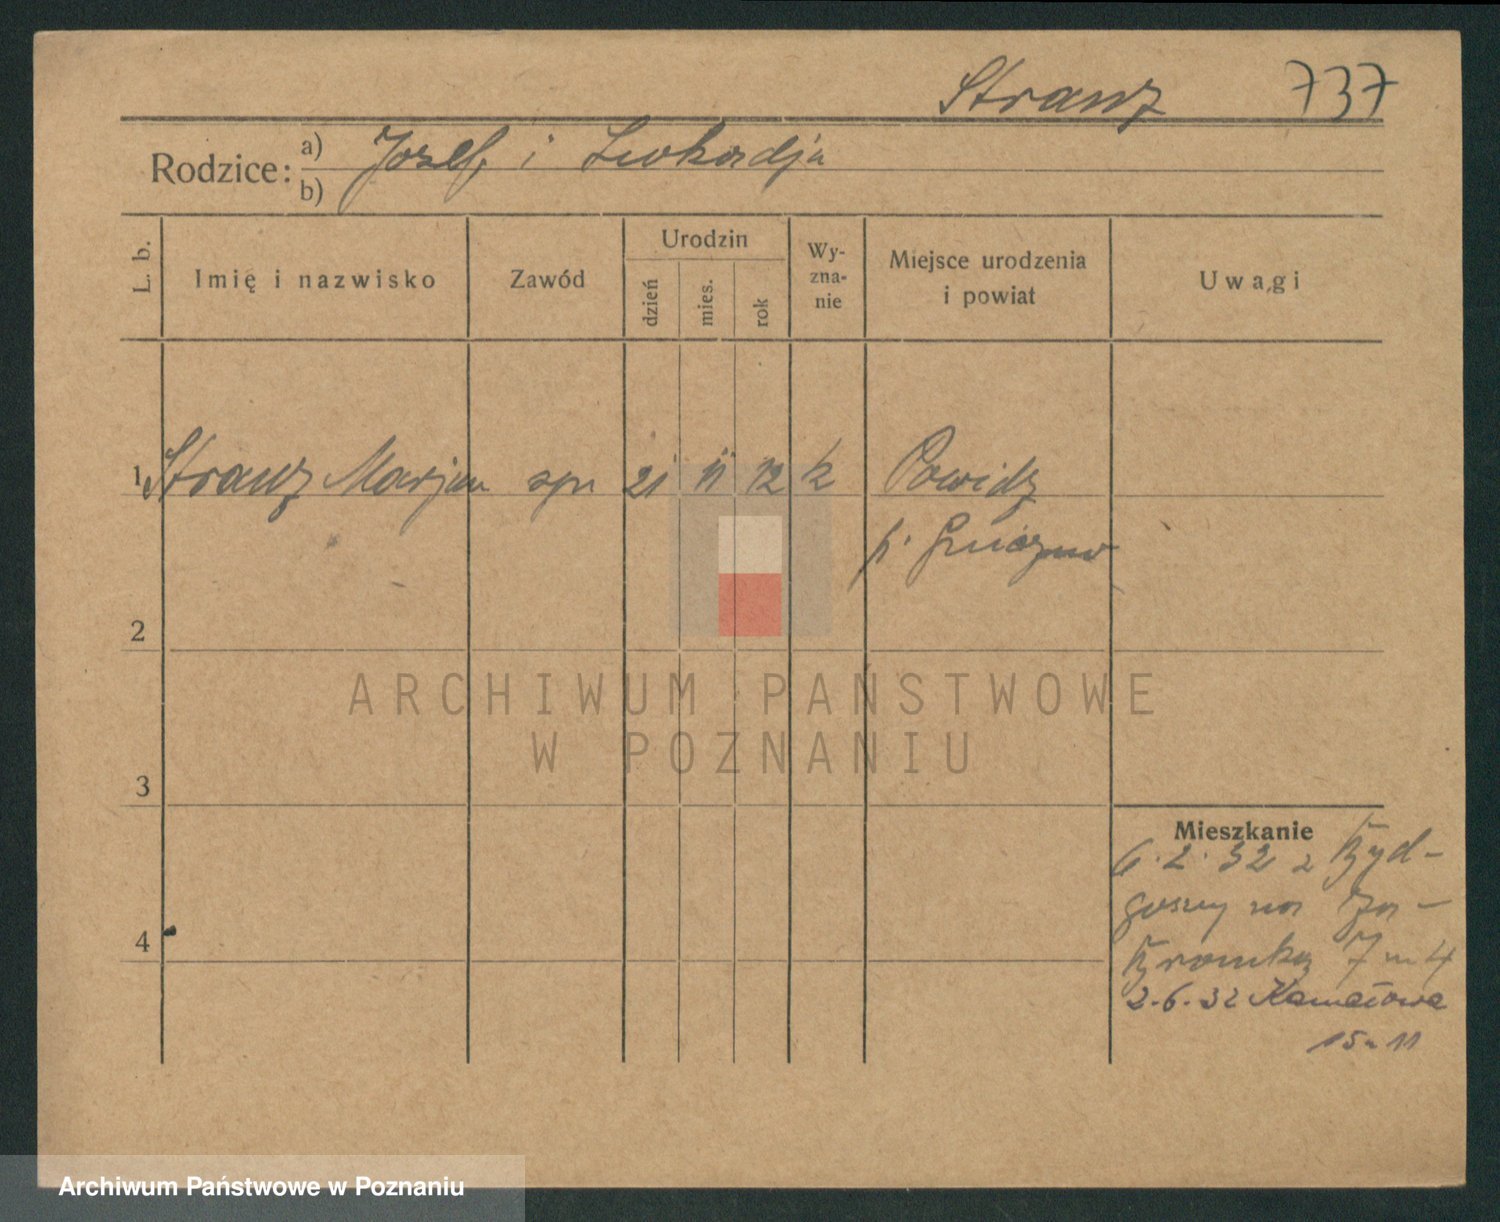 Stranz 737
Rodzice: a) Josef i Leokadja
b)
L. b.
Imię i nazwisko
Zawód
Urodzin
dzień
mies.
rok
Wy-
zna-
nie
Miejsce urodzenia
i powiat
Uwagi
1 Stranz Marjan 21 11 12 k Powidz
p.
2
ARCHIWUM PAŃSTWOWE
W POZNANIU
3
Mieszkanie
6.2.32 z Byd-
goszczy na Za-
7 m 4
2.6.32
15 m 11
4
Archiwum Państwowe w Poznaniu